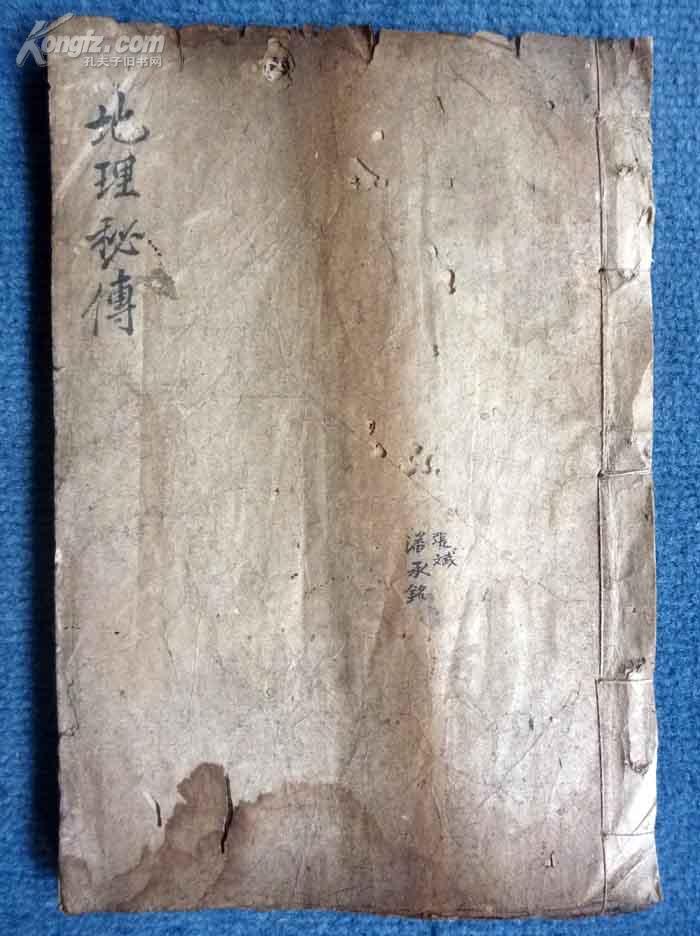 Kongfz.com
孔夫子旧书网
地理秘傳
張斌
潘承銘